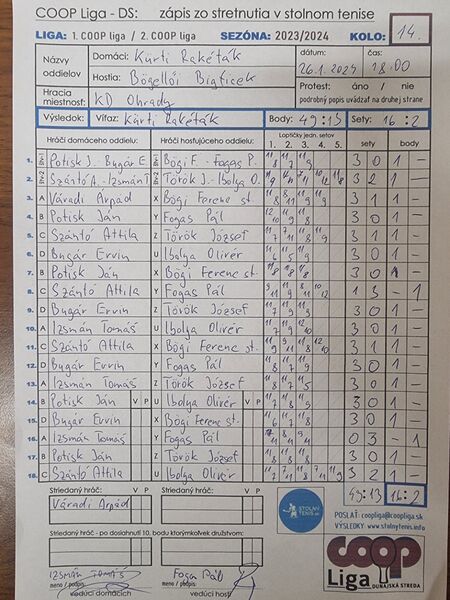 COOP Liga - DS: zápis zo stretnutia v stolnom tenise
LIGA: 1. COOP liga / 2. COOP liga SEZÓNA: 2023/2024 KOLO: 14.
Názvy oddielov Domáci: Kürti Rakéták dátum: 26.1.2024 čas: 18:00
Hostia: Bögellői Bigficek
Hracia miestnosť: KD Ohrady Protest: áno / nie
podrobný popis uvádzať na druhej strane
Výsledok: Víťaz: Kürti Rakéták Body: 49:13 Sety: 16:2
Hráči domáceho oddielu Hráči hosťujúceho oddielu Loptičky jedn. setov sety body
1. 2. 3. 4. 5.
1. Potisk J. - Bugár E. Bögi F. - Fogas P. 3 0 1 -
2. Szántó A. - Izsmán T. Török J. - Ibolya O. 3 2 1 -
3. A Váradi Árpád X Bögi Ferenc st. 3 1 1 -
4. B Potisk Ján Y Fogas Pál 3 0 1 -
5. C Szántó Attila Z Török József 3 1 1 -
6. D Bugár Ervin U Ibolya Olivér 3 0 1 -
7. B Potisk Ján X Bögi Ferenc st. 3 0 1 -
8. C Szántó Attila Y Fogas Pál 1 3 - 1
9. D Bugár Ervin Z Török József 3 0 1 -
10. A Izsmán Tomáš U Ibolya Olivér 3 0 1 -
11. C Szántó Attila X Bögi Ferenc st. 3 1 1 -
12. D Bugár Ervin Y Fogas Pál 3 0 1 -
13. A Izsmán Tomáš Z Török József 3 0 1 -
14. B Potisk Ján V P U Ibolya Olivér V P 3 0 1 -
15. D Bugár Ervin X Bögi Ferenc st. 3 0 1 -
16. A Izsmán Tomáš Y Fogas Pál 0 3 - 1
17. B Potisk Ján Z Török József 3 0 1 -
18. C Szántó Attila U Ibolya Olivér 3 2 1 -
Striedaný hráč: V P Striedaný hráč: V P 49:13 16:2
Váradi Árpád
STOLNÝ TENIS
POSLAŤ: coopliga@coopliga.sk
VÝSLEDKY: www.stolnytenis.info
Striedaný hráč - po dosiahnutí 10. bodu ktorýmkoľvek družstvom:
Izsmán Tomáš Fogas Pál
meno / podpis meno / podpis
vedúci domácich vedúci hostí
coop
Liga DUNAJSKÁ STREDA